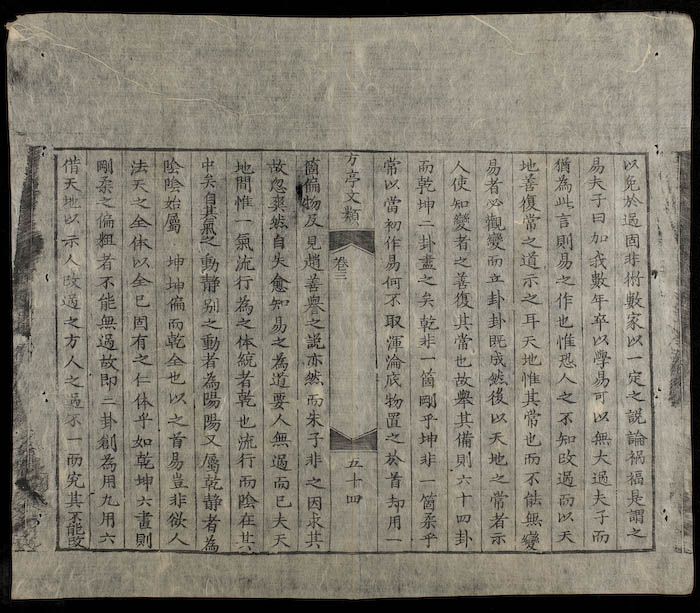 以免於過固非術數家以一定之說論禍福是謂之
易夫子曰加我數年卒以學易可以無大過夫子而
猶為此言則易之作也惟恐人之不知改過而以天
地善復常之道示之耳天地惟其常也而不能無變
易者必觀變而立卦卦既成然後以天地之常者示
人使知變者之善復其常也故舉其備則六十四卦
而乾坤二卦盡之矣乾非一箇剛乎坤非一箇柔乎
常以當初作易何不取渾淪底物置之於首却用一
方亭文類
卷三
五十四
箇偏物及見趙善譽之說亦然而朱子非之因求其
故忽爽然自失愈知易之為道要人無過而已夫天
地間惟一氣流行為之体統者乾也流行而陰在其
中矣自其氣之動靜別之動者為陽陽又屬乾靜者為
陰陰始屬 坤坤偏而乾全也以之首易豈非欲人
法天之全体以全已固有之仁体乎如乾坤六畫則
剛柔之偏粗者不能無過故即二卦創為用九用六
借天地以示人改過之方人之過不一而究其不能改